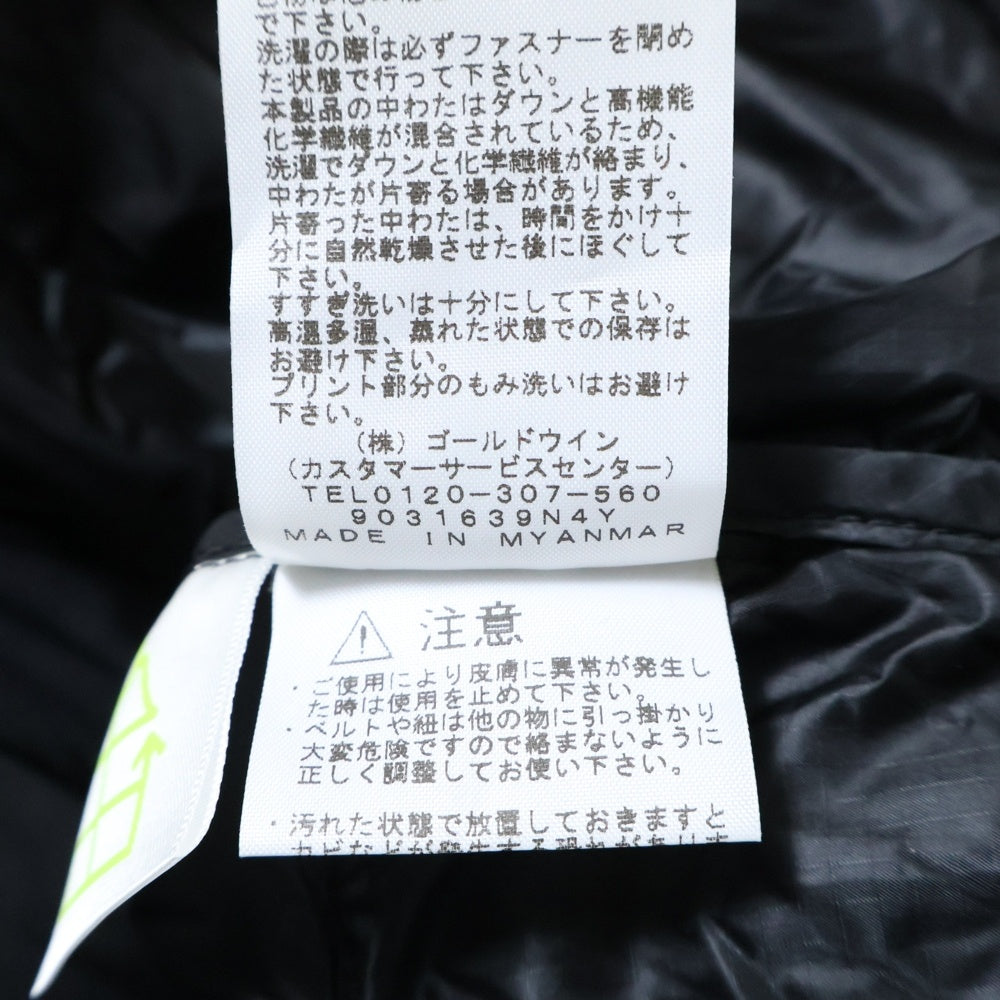 で下さい。
洗濯の際は必ずファスナーを閉め
た状態で行って下さい。
本製品の中わたはダウンと高機能
化学繊維が混合されているため、
洗濯でダウンと化学繊維が絡まり、
中わたが片寄る場合があります。
片寄った中わたは、時間をかけ十
分に自然乾燥させた後にほぐして
下さい。
すすぎ洗いは十分にして下さい。
高温多湿、蒸れた状態での保存は
お避け下さい。
プリント部分のもみ洗いはお避け
下さい。
(株) ゴールドウイン
(カスタマーサービスセンター)
TEL0120-307-560
9031639N4Y
MADE IN MYANMAR
注意
・ご使用により皮膚に異常が発生し
た時は使用を止めて下さい。
・ベルトや紐は他の物に引っ掛かり
大変危険ですので絡まないように
正しく調整してお使い下さい。
・汚れた状態で放置しておきますと